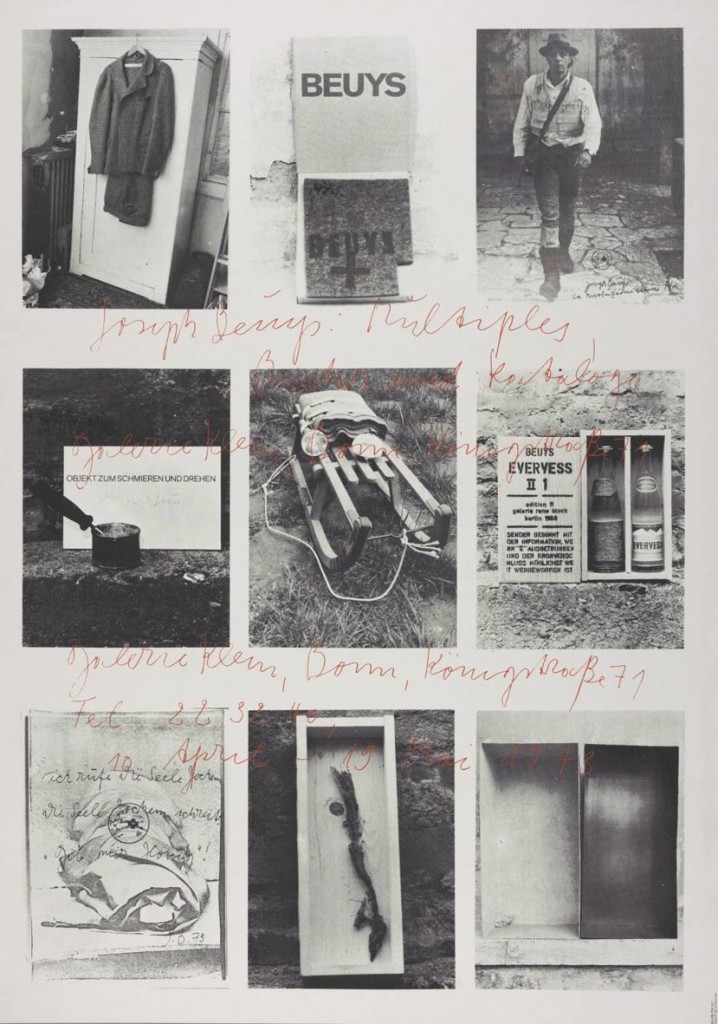 BEUYS
BEUYS
Joseph Beuys
la rivoluzione siamo Noi
Joseph Beuys: Multiples,
Bücher und Kataloge
Galerie Klein, Bonn, Königstraße 71
OBJEKT ZUM SCHMIEREN UND DREHEN
BEUYS
EVERVESS
II 1
edition R
galerie rene block
berlin 1968
SENDER BEGINNT MIT
DER INFORMATION, WE
NN "II" AUSGETRUNKEN
UND DER KRONVERSC
HLUSS MÖGLICHST WE
IT WEGGEWORFEN IST
EVERVESS
Galerie Klein, Bonn, Königstraße 71
Tel 22 32 40,
10. April - 19. Mai 1973
ich rufe die Seele
die Seele schreit
"Gib mein Honig"!
J.B. 73